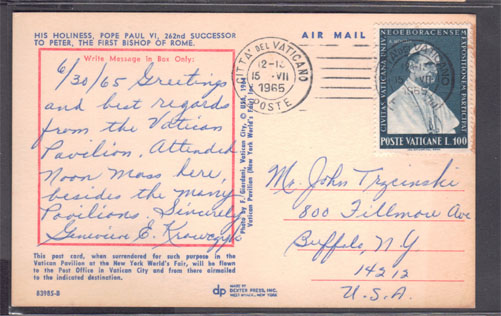 HIS HOLINESS, POPE PAUL VI, 262nd SUCCESSOR
TO PETER, THE FIRST BISHOP OF ROME.
Write Message in Box Only:
6/30/65 Greetings
and best regards
from the Vatican
Pavilion. Attended
Noon Mass here,
besides the many
Pavilions. Sincerely
Genevieve E.
This post card, when surrendered for such purpose in the
Vatican Pavilion at the New York World's Fair, will be flown
to the Post Office in Vatican City and from there airmailed
to the indicated destination.
83985-B
Photo by F. Giordani, Vatican City. © USA, 1964
Vatican Pavilion (New York World's Fair)
dp
MADE BY
DEXTER PRESS, INC.
WEST NYACK, NEW YORK
AIR MAIL
CITTA' DEL VATICANO
POSTE
15 VII
1965
CIVITAS VATICANA
NEOEBORACENSEM
EXPOSITIONEM PARTICIPAT
POSTE VATICANE L.100
Mr. John Trzcinski
800 Fillmore Ave
Buffalo, N.Y
14212
U.S.A.